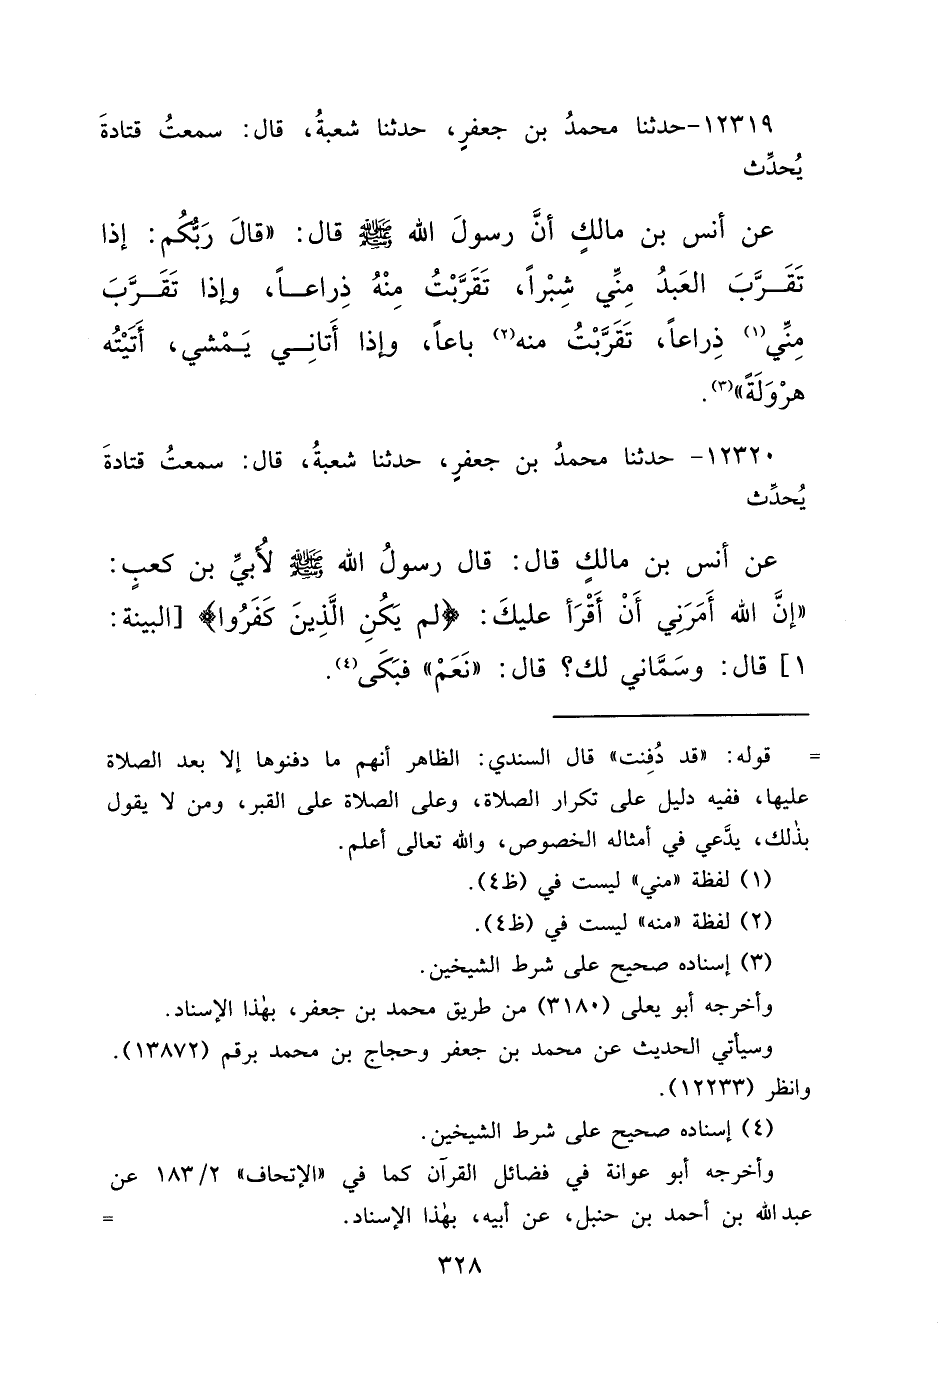 ١٢٣١٩-حدثنا محمدُ بن جعفرٍ، حدثنا شعبةُ، قال: سمعتُ قتادةَ
يُحدِّث
عن أنس بن مالكٍ أنَّ رسولَ الله ﷺ قال: «قالَ رَبُّكُم: إذا
تَقَـرَّبَ العَبدُ مِنِّي شِبْراً، تَقَرَّبْتُ مِنْهُ ذِراعـاً، وإذا تَقَـرَّبَ
مِنِّي(١) ذِراعاً، تَقَرَّبْتُ منه(٢) باعاً، وإذا أَتانِـي يَـمْشي، أَتَيْتُه
هرْوَلَةً»(٣).
١٢٣٢٠- حدثنا محمدُ بن جعفرٍ، حدثنا شعبةُ، قال: سمعتُ قتادةَ
يُحدِّث
عن أنس بن مالكٍ قال: قال رسولُ الله ﷺ لأُبيِّ بن كعبٍ:
«إنَّ الله أَمَرَنِي أَنْ أَقْرَأ عليكَ: ﴿لم يَكُنِ الَّذِينَ كَفَرُوا﴾ [البينة:
١] قال: وسَمَّاني لك؟ قال: «نَعَمْ» فبَكَى(٤).
= قوله: «قد دُفِنت» قال السندي: الظاهر أنهم ما دفنوها إلا بعد الصلاة
عليها، ففيه دليل على تكرار الصلاة، وعلى الصلاة على القبر، ومن لا يقول
بذٰلك، يدَّعي في أمثاله الخصوص، والله تعالى أعلم.
(١) لفظة «مني» ليست في (ظ٤).
(٢) لفظة «منه» ليست في (ظ٤).
(٣) إسناده صحيح على شرط الشيخين.
وأخرجه أبو يعلى (٣١٨٠) من طريق محمد بن جعفر، بهٰذا الإسناد.
وسيأتي الحديث عن محمد بن جعفر وحجاج بن محمد برقم (١٣٨٧٢).
وانظر (١٢٢٣٣).
(٤) إسناده صحيح على شرط الشيخين.
وأخرجه أبو عوانة في فضائل القرآن كما في «الإتحاف» ١٨٣/٢ عن
عبدالله بن أحمد بن حنبل، عن أبيه، بهٰذا الإسناد. =
٣٢٨